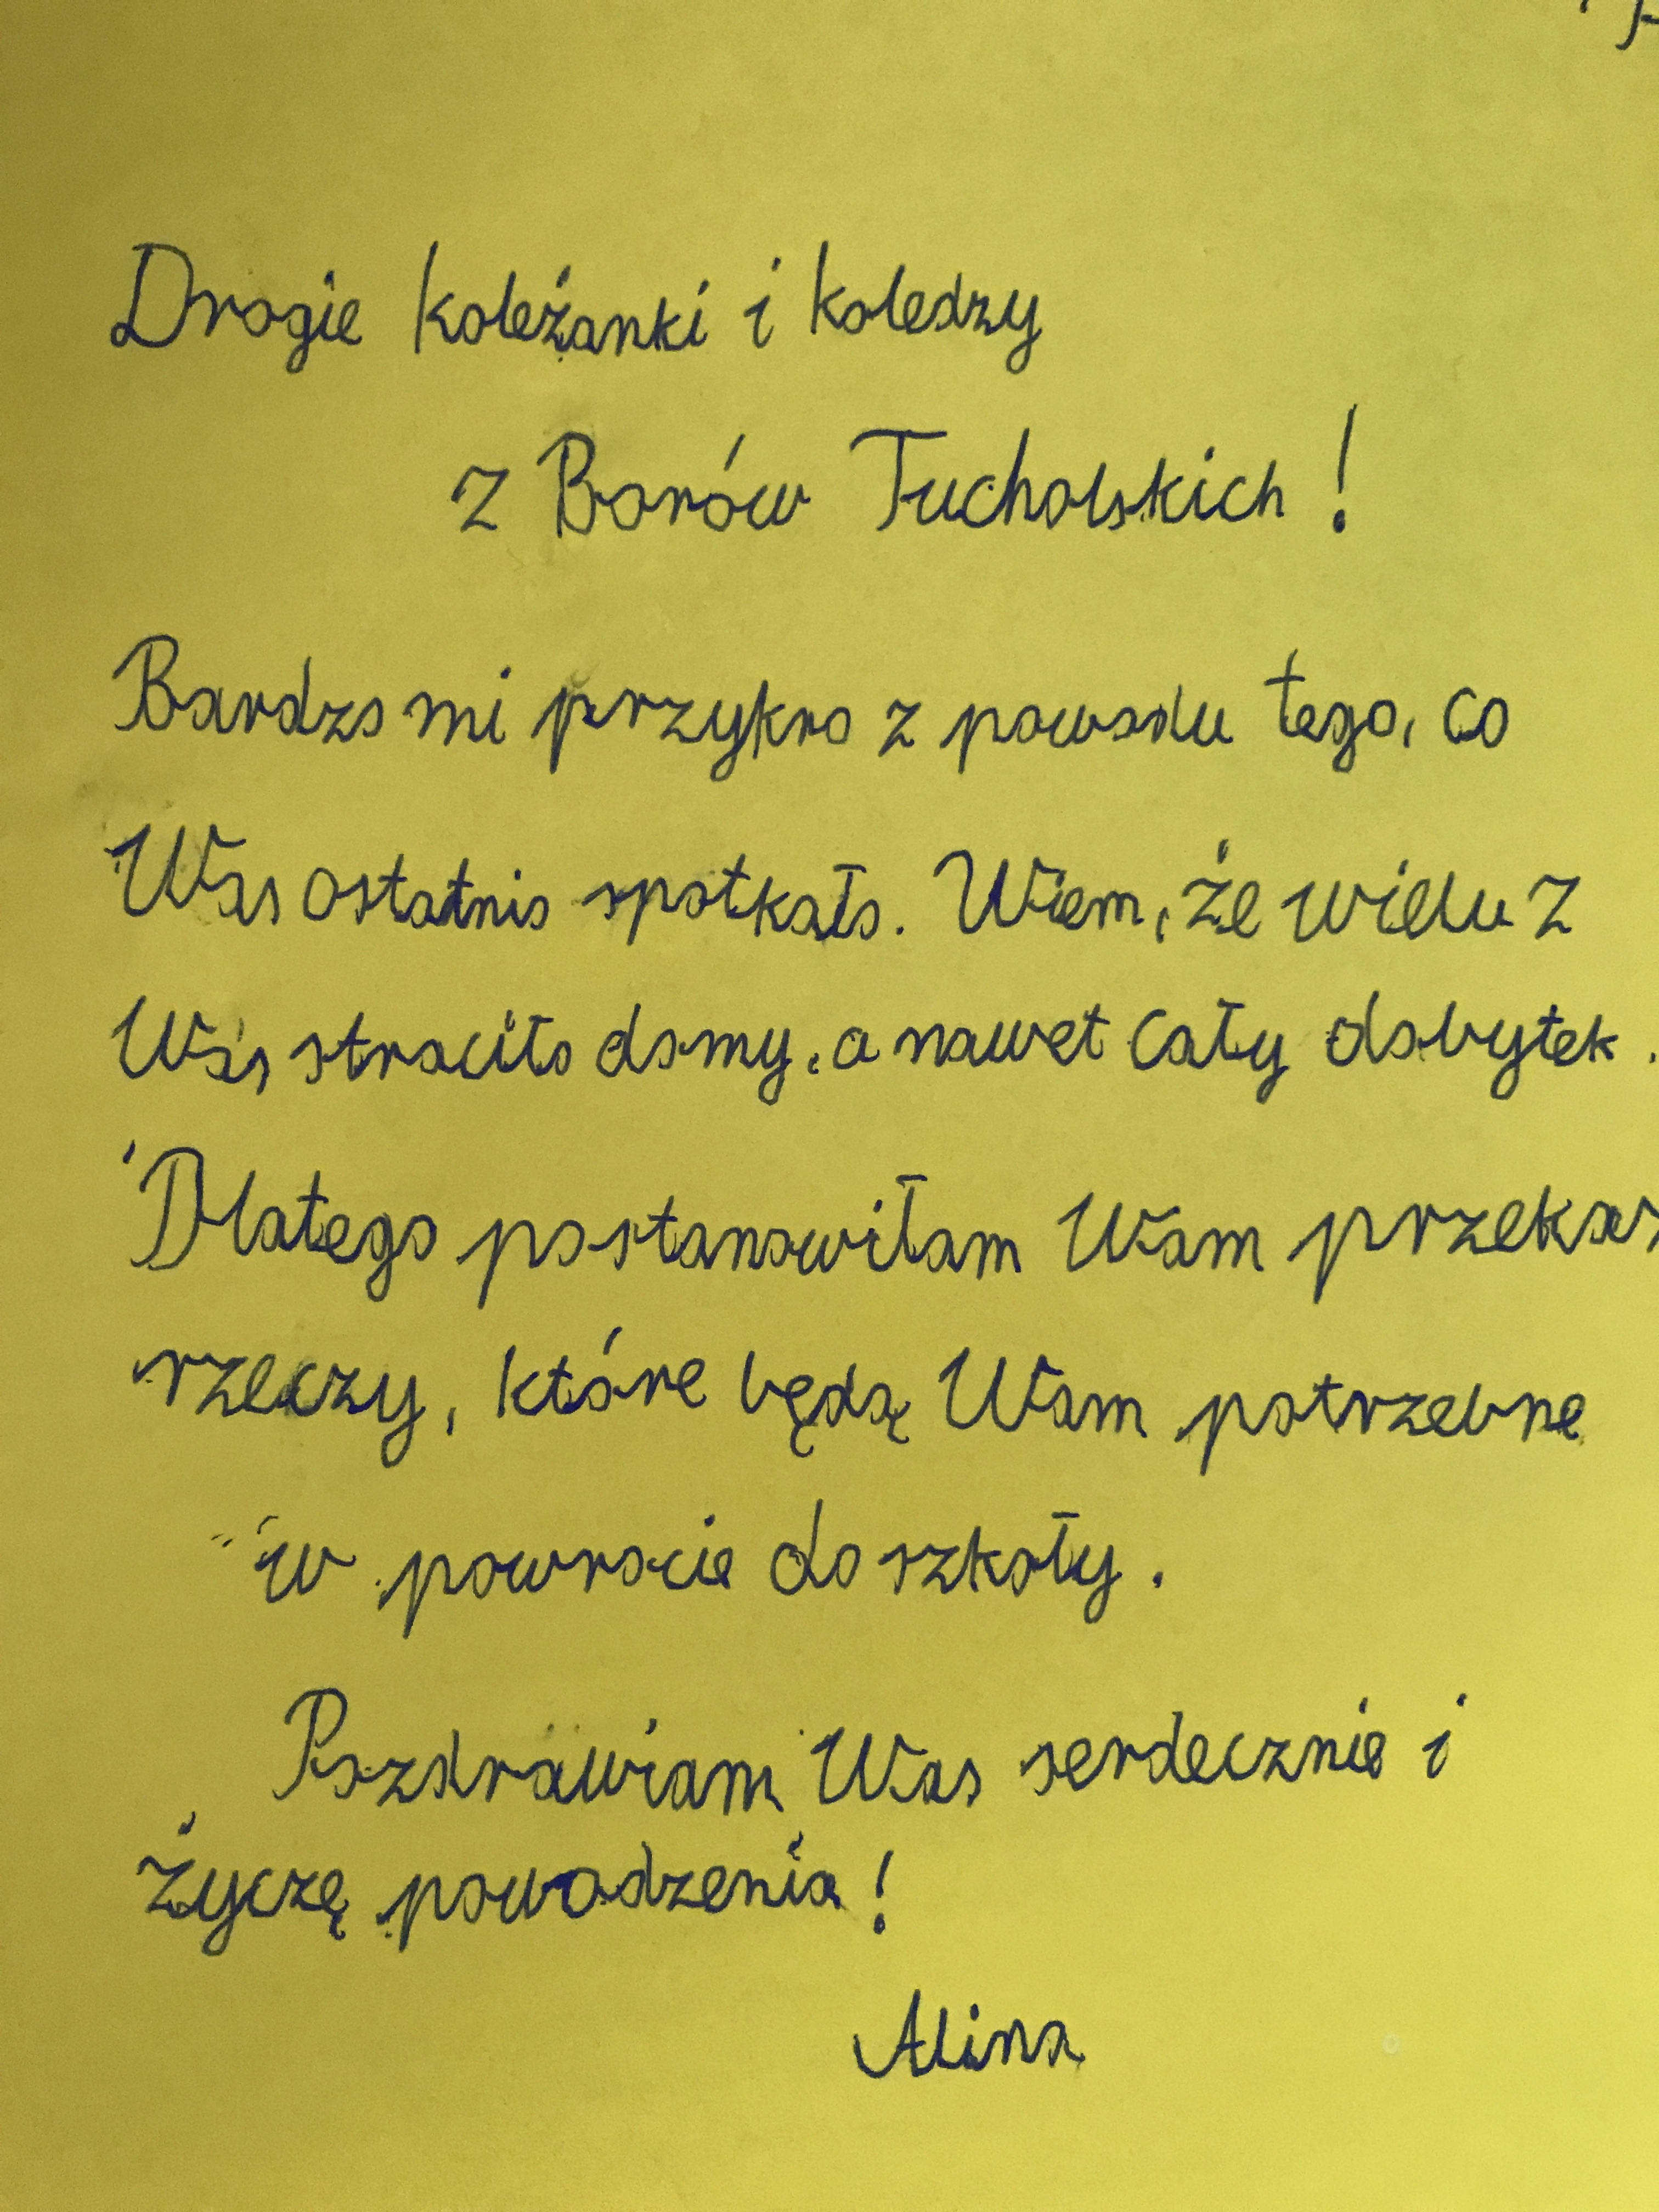 Drogie koleżanki i koledzy
z Borów Tucholskich!
Bardzo mi przykro z powodu tego, co
Was ostatnio spotkało. Wiem, że wielu z
Was straciło domy, a nawet cały dobytek.
Dlatego postanowiłam Wam przekaz
rzeczy, które będą Wam potrzebne
w powrocie do szkoły.
Pozdrawiam Was serdecznie i
życzę powodzenia!
Alina